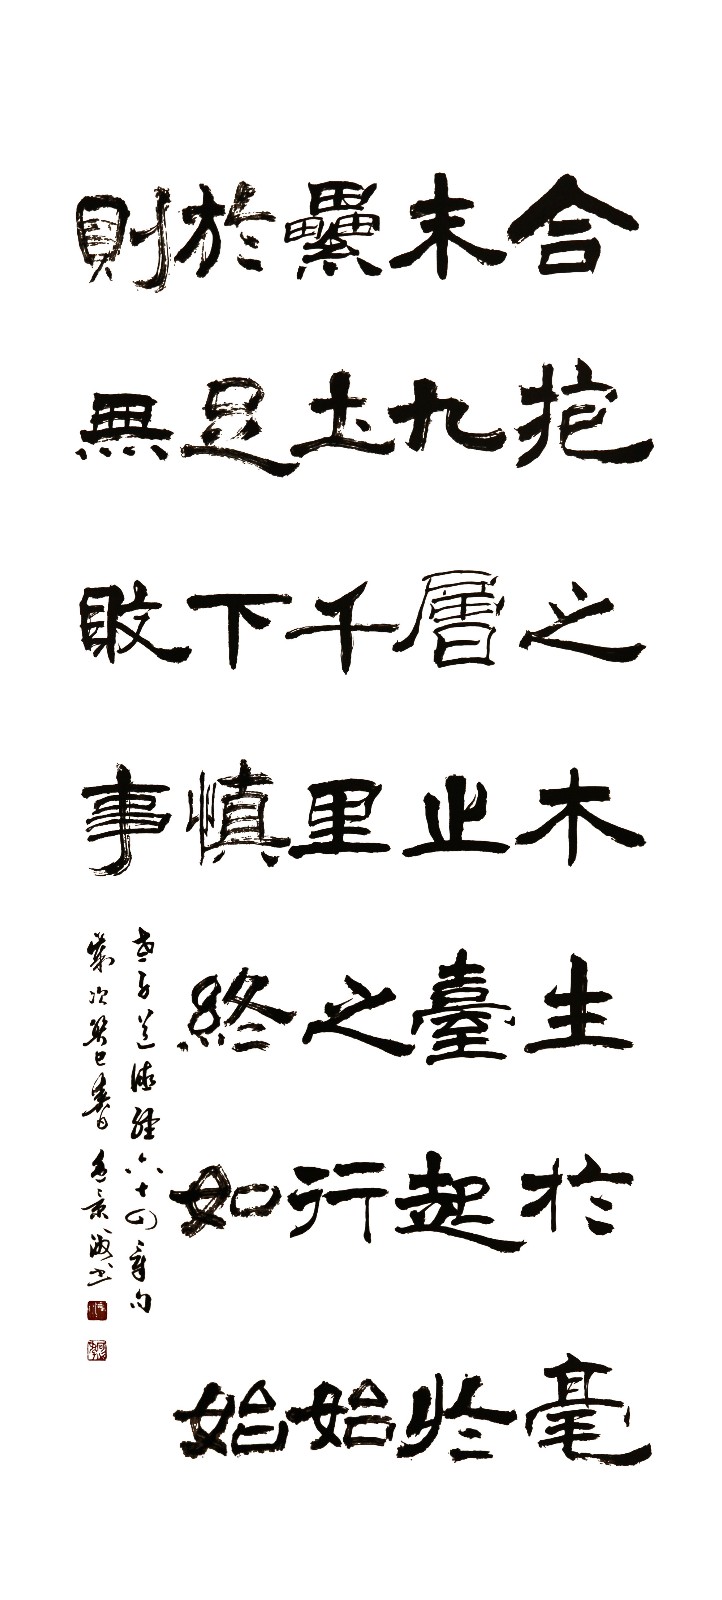 合抱之木生於毫
末九層止臺起於
纍土千里之行始
於足下慎終如始
則無敗事
老子道德經六十四章句
歲次癸巳春日 書